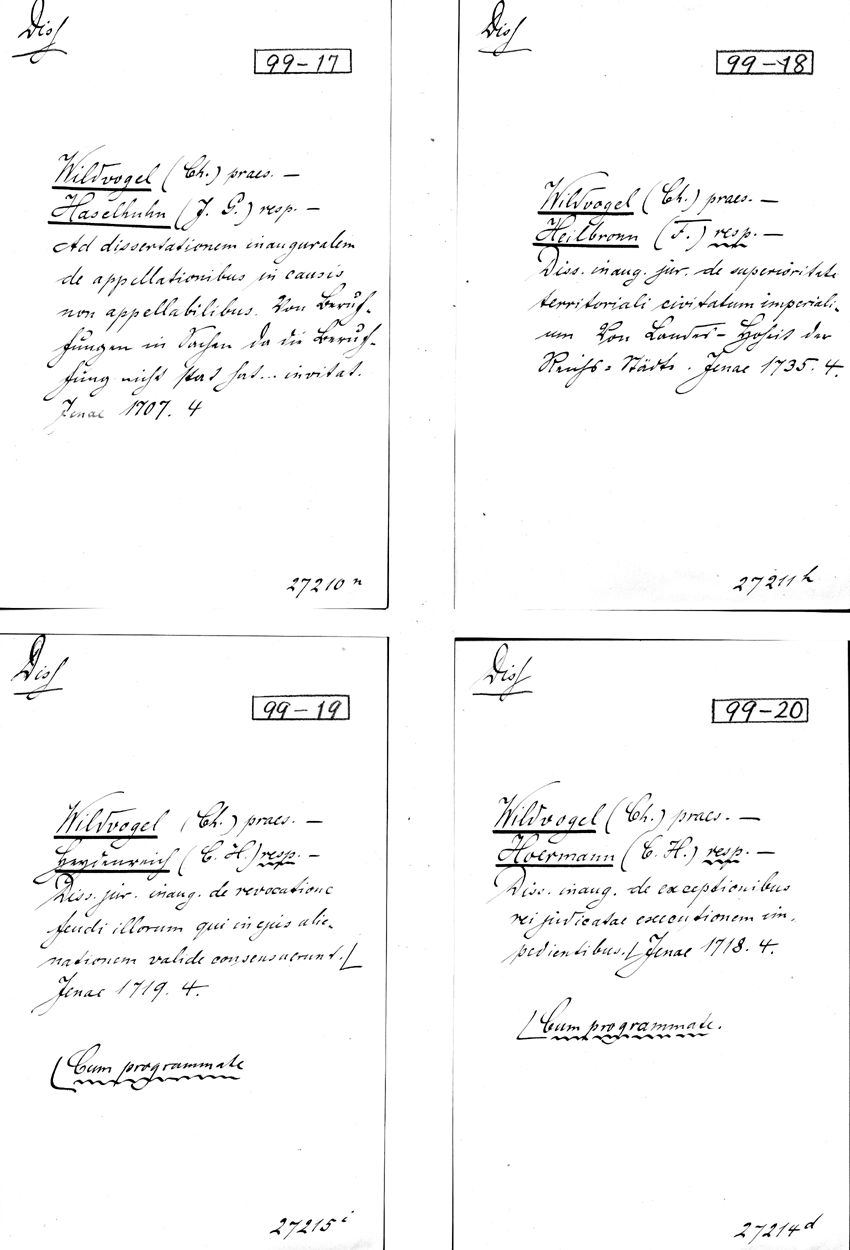 Diss
99-17
Wildvogel (Ch.) praes. —
Haselhuhn (J. G.) resp. —
Ad dissertationem inauguralem
de appellationibus in causis
non appellabilibus. Von Beruf-
fungen in Sachen da die Beruf-
fung nicht stat hat... invitat.
Jenae 1707. 4
27210 n
Diss
99-18
Wildvogel (Ch.) praes. —
Heilbronn (F.) resp. —
Diss. inaug. jur. de superioritate
territoriali civitatum imperiali-
um Von Landes-Hoheit der
Reichs-Städte. Jenae 1735. 4.
27211 h
Diss
99-19
Wildvogel (Ch.) praes. —
Heydenreich (C. H.) resp. —
Diss. jur. inaug. de revocatione
feudi illorum qui in ejus alie-
nationem valide consenserunt. [
Jenae 1719. 4.
[Cum programmate
27215 i
Diss
99-20
Wildvogel (Ch.) praes. —
Hoermann (C. H.) resp. —
Diss. inaug. de exceptionibus
rei judicatae executionem im-
pedientibus. [ Jenae 1718. 4.
[Cum programmate.
27214 d